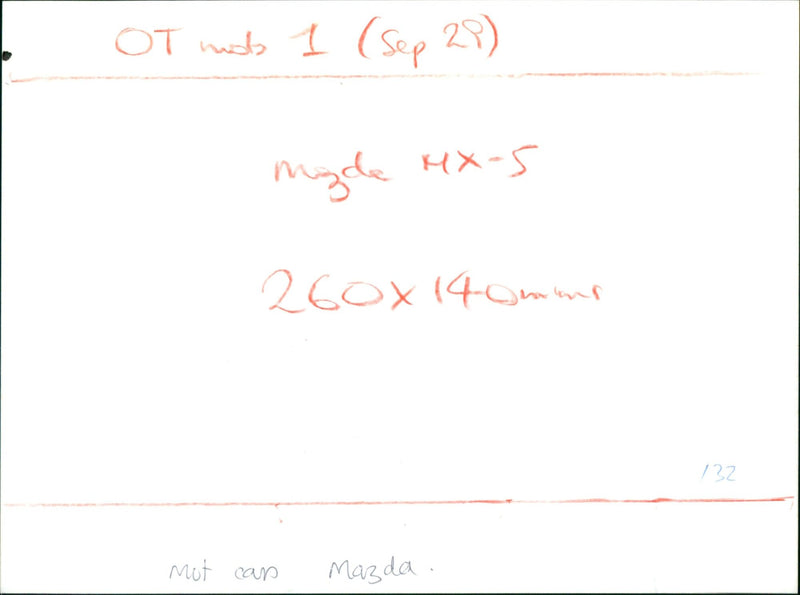 OT mots 1 (Sep 29)
Mazda MX-5
260x140mm
132
Mot cars Mazda.